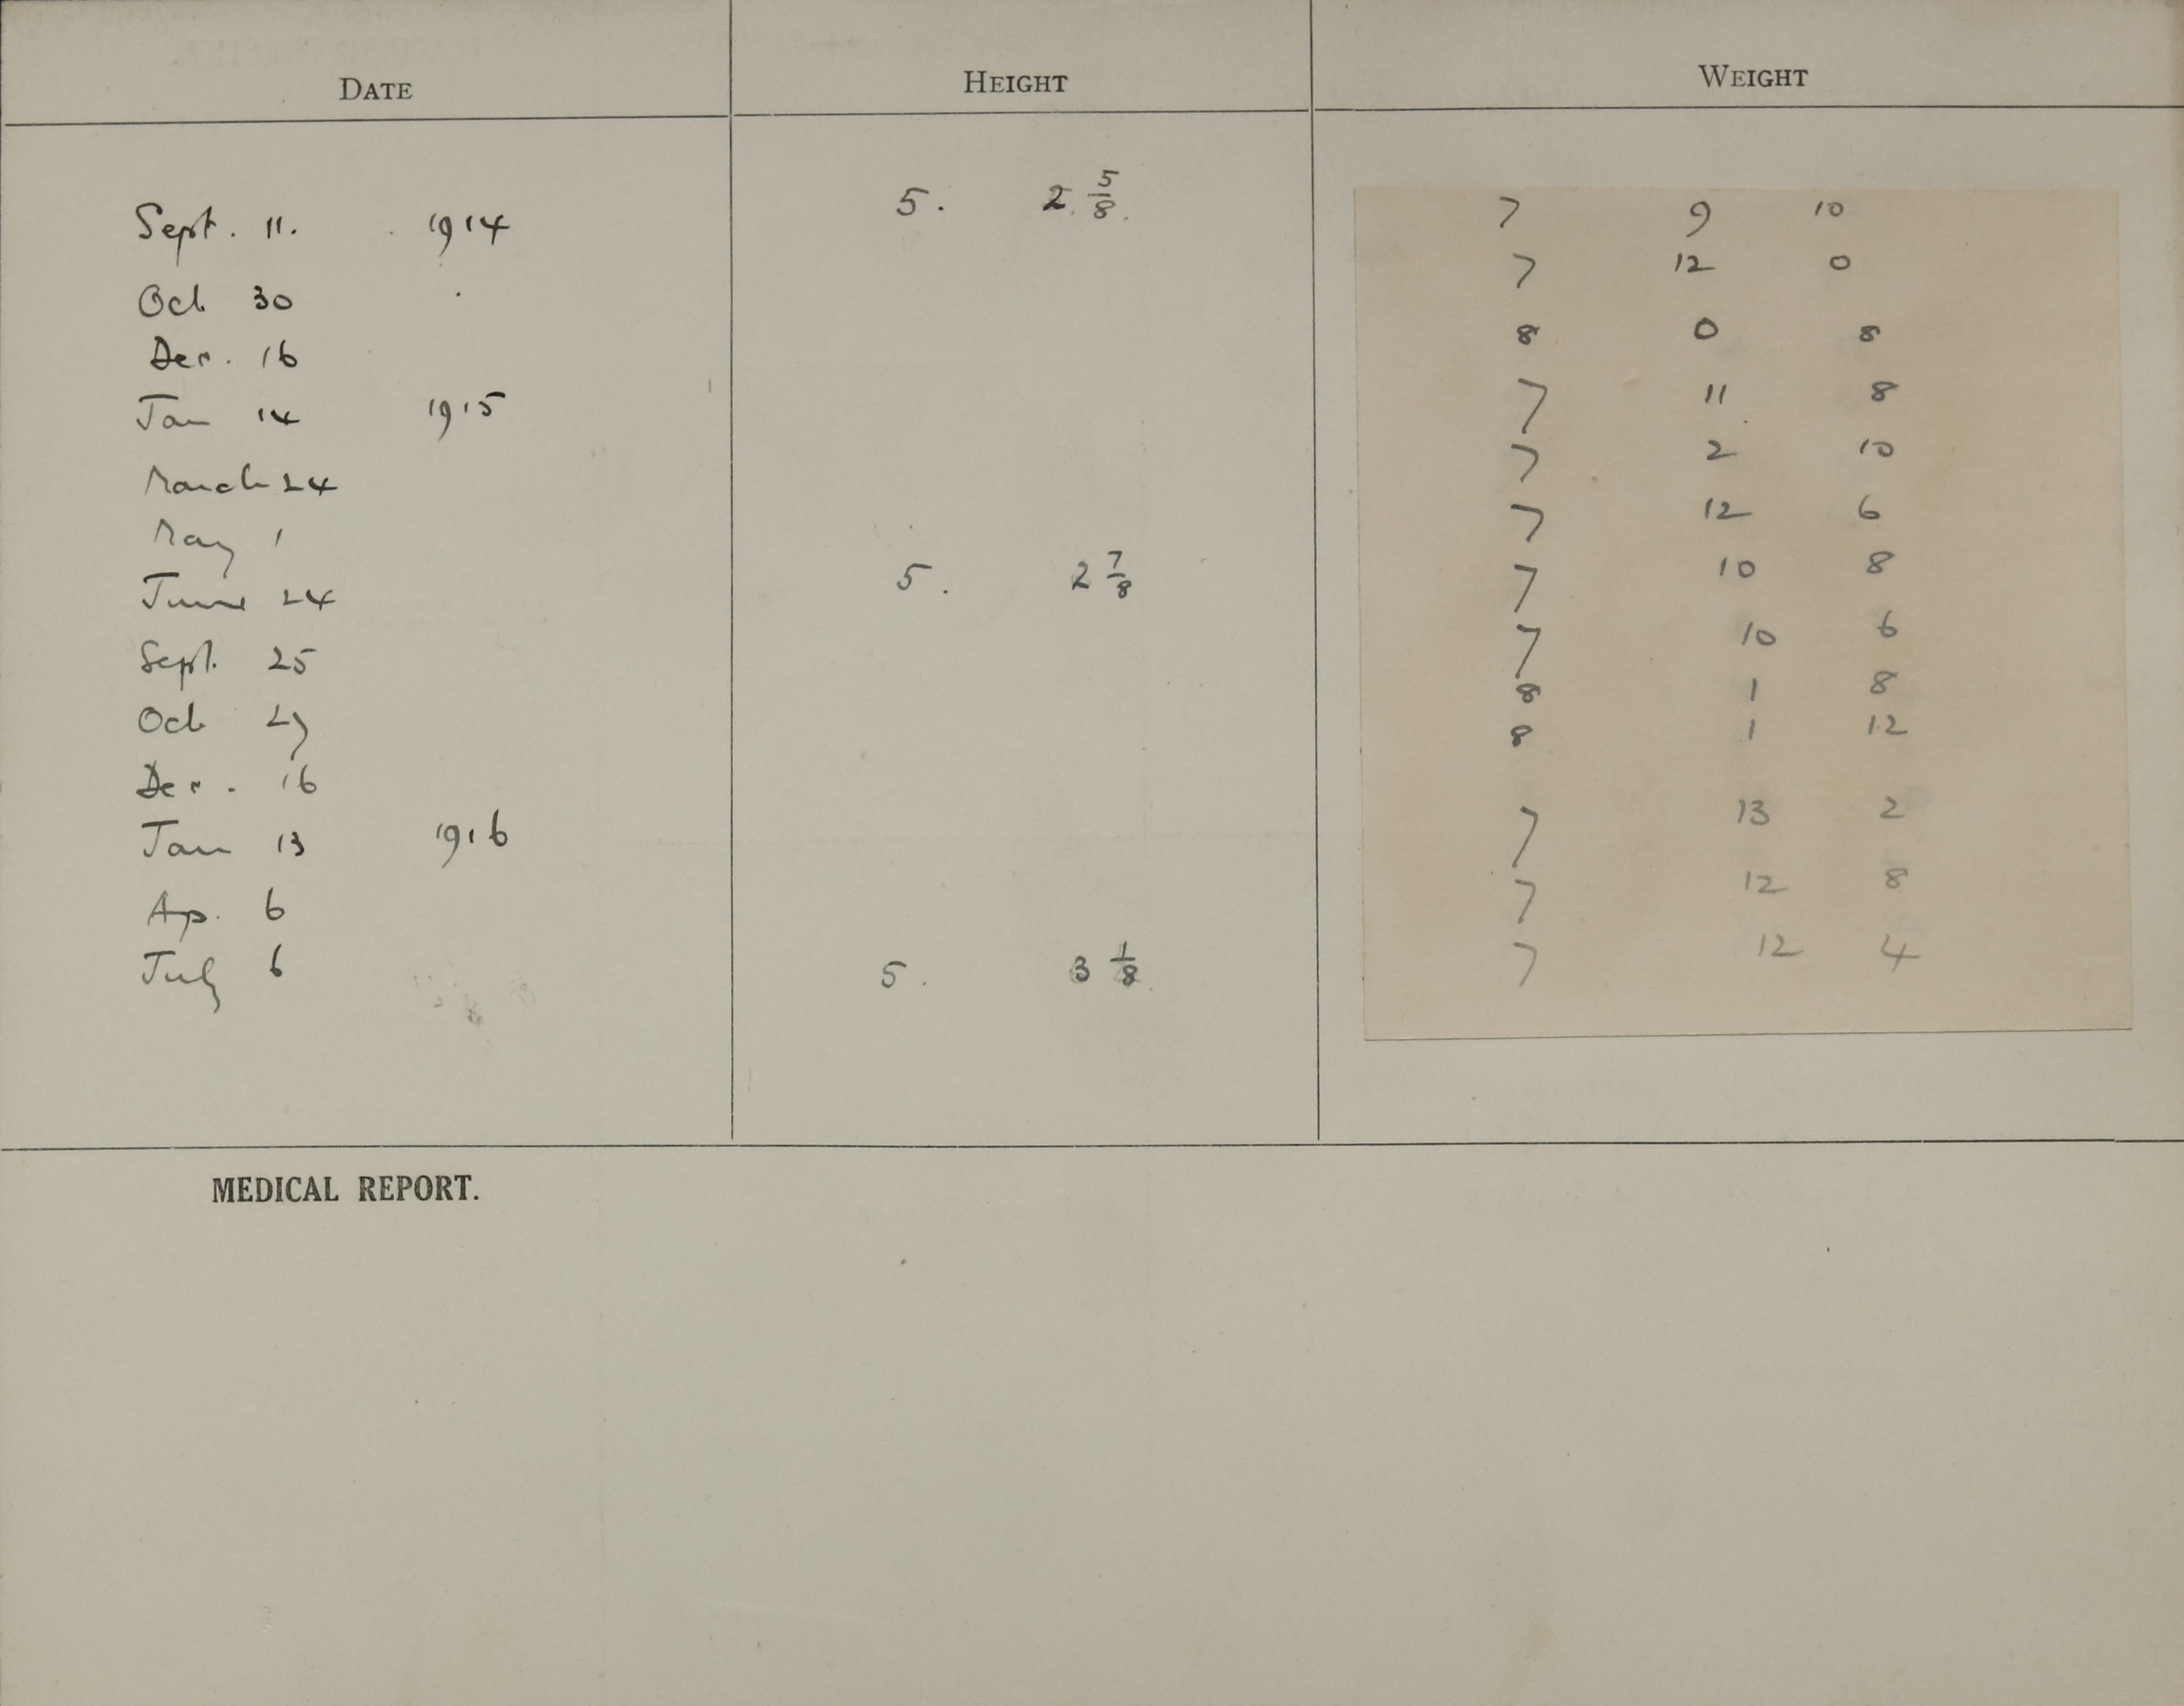 DATE HEIGHT WEIGHT
Sept. 11. 1914 5. 2 5/8. 7 9 10
Oct 30 7 12 0
Dec. 16 8 0 8
Jan 14 1915 7 11 8
March 24 7 2 10
May 1 7 12 6
June 24 5. 2 7/8 7 10 8
Sept. 25 7 10 6
Oct 27 8 1 8
Dec. 16 8 1 12
Jan 13 1916 7 13 2
Ap. 6 7 12 8
July 6 5. 3 1/8 7 12 4
MEDICAL REPORT.